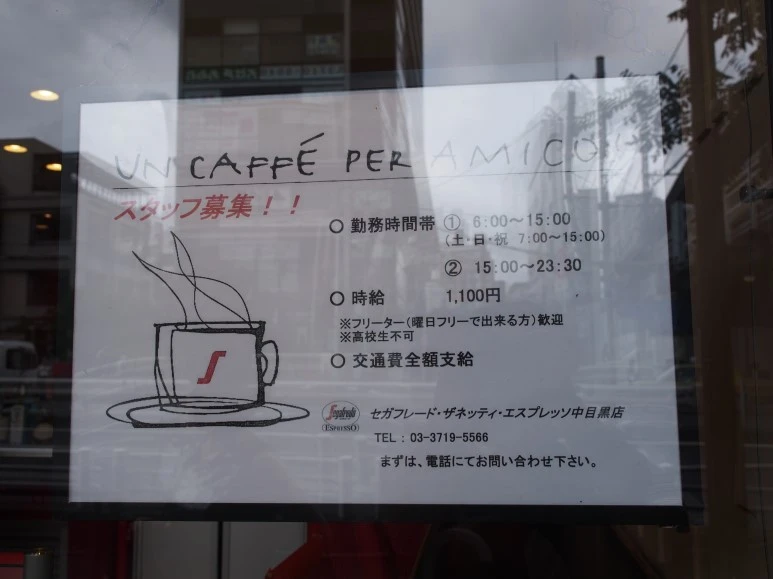 UN CAFFÉ PER AMICO!
スタッフ募集！！
○ 勤務時間帯 ① 6:00～15:00
(土・日・祝 7:00～15:00)
② 15:00～23:30
○ 時給 1,100円
※フリーター（曜日フリーで出来る方）歓迎
※高校生不可
○ 交通費全額支給
Segafredo
ESPRESSO
セガフレード・ザネッティ・エスプレッソ中目黒店
TEL : 03-3719-5566
まずは、電話にてお問い合わせ下さい。